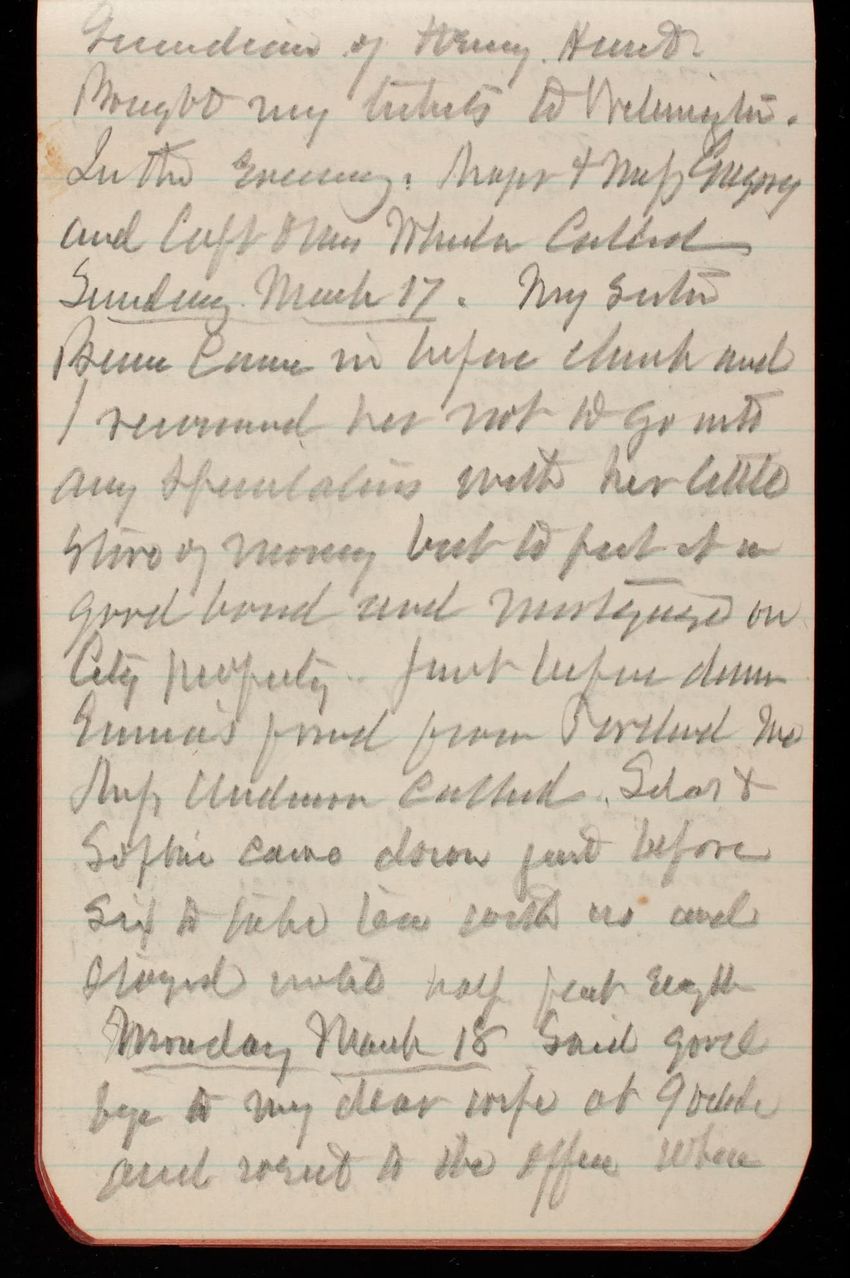 Guardian of Henry Hunt.
Bought my tickets to Wilmington.
In the Evening. Major & Mrs Gregory
and Capt & Mrs Wheeler Called
Sunday March 17. My sister
came in before church and
I recommend her not to go into
any speculations with her little
store of money but to put it in
good bond and mortgage on
City property. Just before dinner
Emma's friend from Portland Me
Mrs Anderson Called. Sedar &
Sophie came down just before
Six to take tea with us and
stayed until half past Eight
Monday March 18 Said good
bye to my dear wife at 9 oclock
and went to the office where